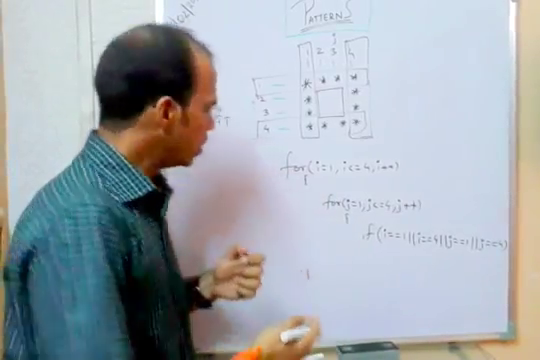 PATTERNS
j
1 2 3 4
1 — * * * *
2 — * *
3 — * *
4 — * * * *
for(i=1, i<=4, i++)
{
for(j=1, j<=4, j++)
{
if(i==1||i==4||j==1||j==4)